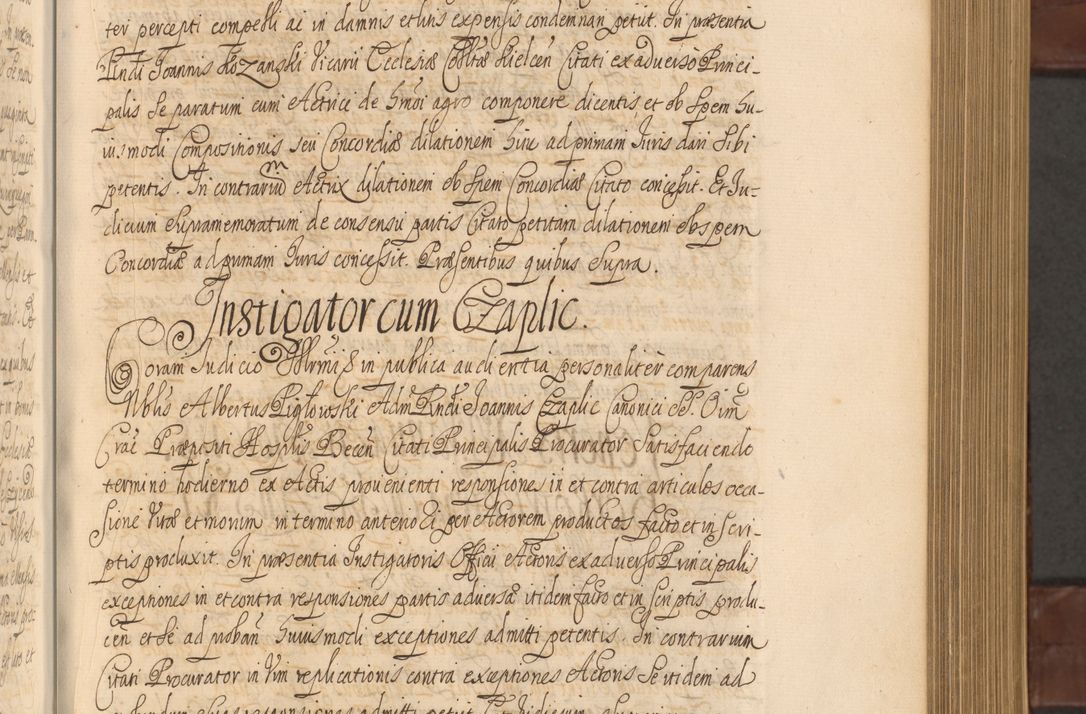 ter percepti compelli ac in damnis et luis expensis condemnari petiit. In præsentia
Rndi Joannis Kozanski Vicarii Ecclesiæ Colltæ Kielcen Citati ex adverso Princi-
palis se paratum cum Actrici de hmoi agro componere dicentis et ob spem hu-
iusmodi Compositionis seu Concordiæ dilationem hinc ad primam Juris dari sibi
petentis. In contrarium Actrix dilationem ob spem Concordiæ Citato concessit. Et Ju-
dicium supramemoratum de consensu partis Citato petitam dilationem ob spem
Concordiæ ad primam Juris concessit. Præsentibus quibus supra.
Instigator cum Czaplic.
Coram Judicio in publica audientia personaliter comparens
Nblis Albertus Pigłowski Adm Rndi Joannis Czaplic Canonici SS. Oim
Crac Præpositi Hosplis Becen Citati Principalis Procurator Satisfaciendo
termino hodierno ex Actis provenienti responsiones in et contra articulos occa-
sione Vitæ et morum in termino anteriori per Actorem productos facto et in scri-
ptis produxit. In præsentia Instigatoris Officii Actoris ex adverso Principalis
exceptiones in et contra responsiones partis adversæ itidem facto et in scriptis produ-
cen et se ad proban huiusmodi exceptiones admitti petentis. In contrarium
Citati Procurator in Vim replicationis contra exceptiones Actoris se itidem ad
admitti petiit. Et Judicium